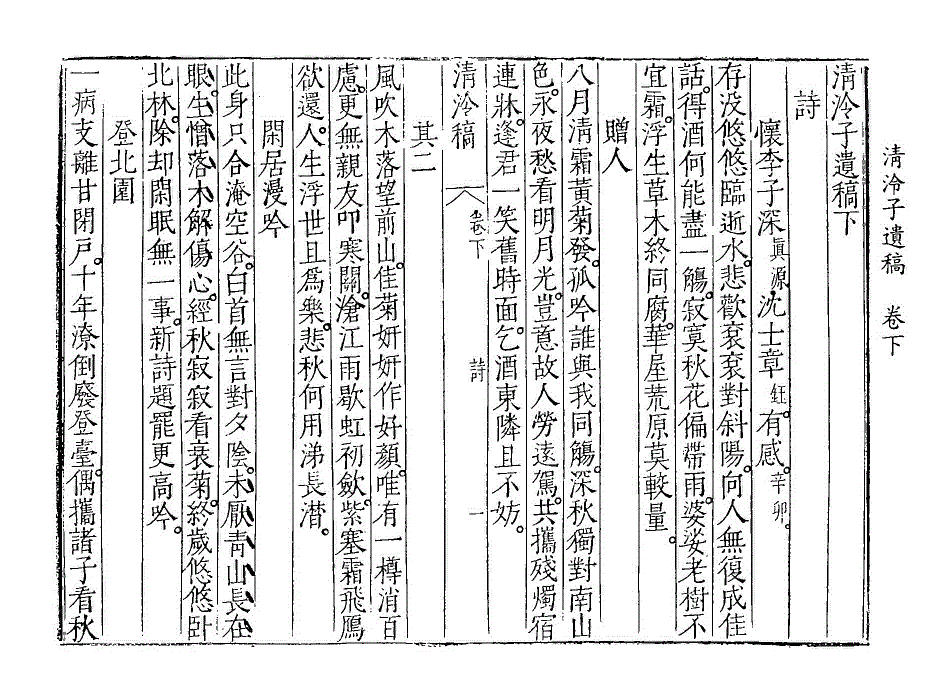 清泠子遺稿　卷下
清泠子遺稿下
詩
懷李子深眞源,沈士章紝。有感。辛卯。
存没悠悠臨逝水。悲歡衮衮對斜陽。向人無復成佳
話。得酒何能盡一觴。寂寞秋花偏帶雨。婆娑老樹不
宜霜。浮生草木終同腐。華屋荒原莫較量。
贈人
八月淸霜黃菊發。孤吟誰與我同觴。深秋獨對南山
色。永夜愁看明月光。豈意故人勞遠駕。共攜殘燭宿
連牀。逢君一笑舊時面。乞酒東隣且不妨。
淸泠稿　卷下　詩　一
其二
風吹木落望前山。佳菊姸姸作好顔。唯有一樽消百
慮。更無親友叩寒關。滄江雨歇虹初斂。紫塞霜飛鴈
欲還。人生浮世且爲樂。悲秋何用涕長潸。
閑居漫吟
此身只合淹空谷。白首無言對夕陰。未厭靑山長在
眼。生憎落木解傷心。經秋寂寂看衰菊。終歲悠悠臥
北林。除却閑眠無一事。新詩題罷更高吟。
登北園
一病支離甘閉戶。十年潦倒廢登臺。偶攜諸子看秋